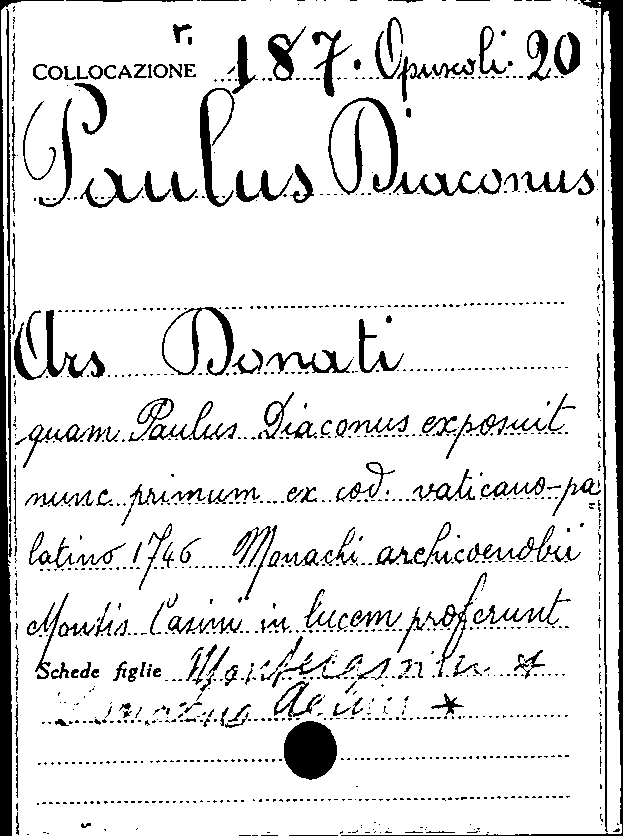 r.
COLLOCAZIONE 187. Opuscoli. 20
Paulus Diaconus
Ars Donati
quam Paulus Diaconus exposuit
nunc primum ex cod. vaticano-pa
latino 1746 Monachi archicoenobii
Montis Casini in lucem proferunt
Schede figlie Montecassino *
*